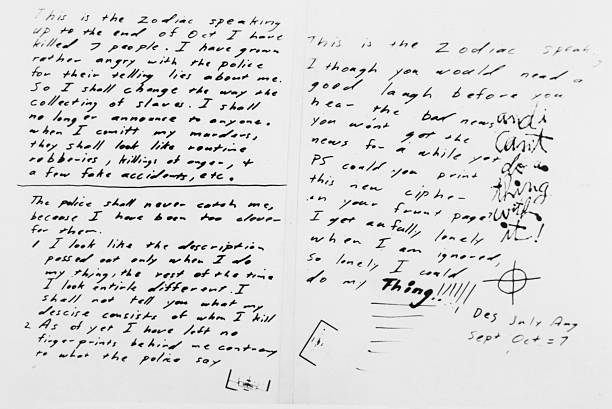 This is the Zodiac speaking
up to the end of Oct I have
killed 7 people. I have grown
rather angry with the police
for their telling lies about me.
So I shall change the way the
collecting of slaves. I shall
no longer announce to anyone.
when I comitt my murders,
they shall look like routine
robberies, killings of anger, +
a few fake accidents, etc.
The police shall never catch me,
because I have been too clever
for them.
1 I look like the description
passed out only when I do
my thing, the rest of the time
I look entirle different. I
shall not tell you what my
descise consists of when I kill
2 As of yet I have left no
fingerprints behind me contrary
to what the police say
This is the Zodiac speak
I though you would need a
good laugh before you
hear the bad news
you won't get the
news for a while yet
PS could you print
this new ciphe-
in your frunt page?
I get awfully lonely
when I am ignored,
so lonely I could
do my Thing!!!!!!
and i
can't
do a
thing
with
it!
Des July Aug
Sept Oct = 7